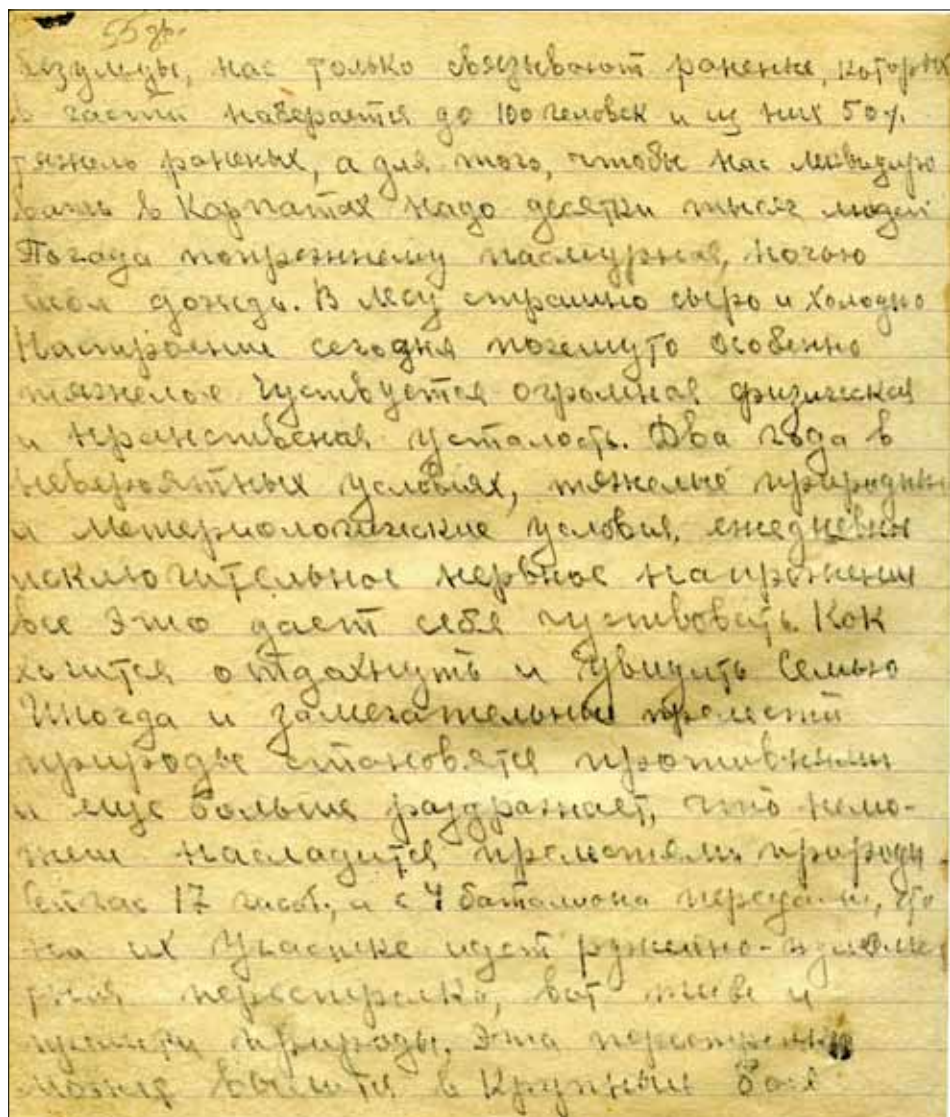 55 др.
безумцы, нас только связывают раненые, которых
в части наберается до 100 человек и из них 50%
тяжело раненых, а для того, чтобы нас ликвидиро
вать в Карпатах надо десятки тысяч людей
Погода попрежнему пасмурная, ночью
шол дождь. В лесу страшно сыро и холодно
Настроение сегодня почемуто особенно
тяжелое чуствуется огромная физическая
и нравственая усталость. Два года в
невероятных условиях, тяжелые природные
и метериологические условия, ежедневн
исключительное нервное напряжение
все это дает себя чуствовать. Как
хочется отдахнуть и увидить семью
Иногда и замечательные прелести
природы становятся противными
и еще больше раздражает, что немо-
жеш насладится прелестями природы.
Сейчас 17 часов, а с 4 баталиона передали, что
на их участке идет ружейно-пулеме
тная перестрелка, вот тебе и
прелести природы. Эта перестрелка
может вылится в крупный бой